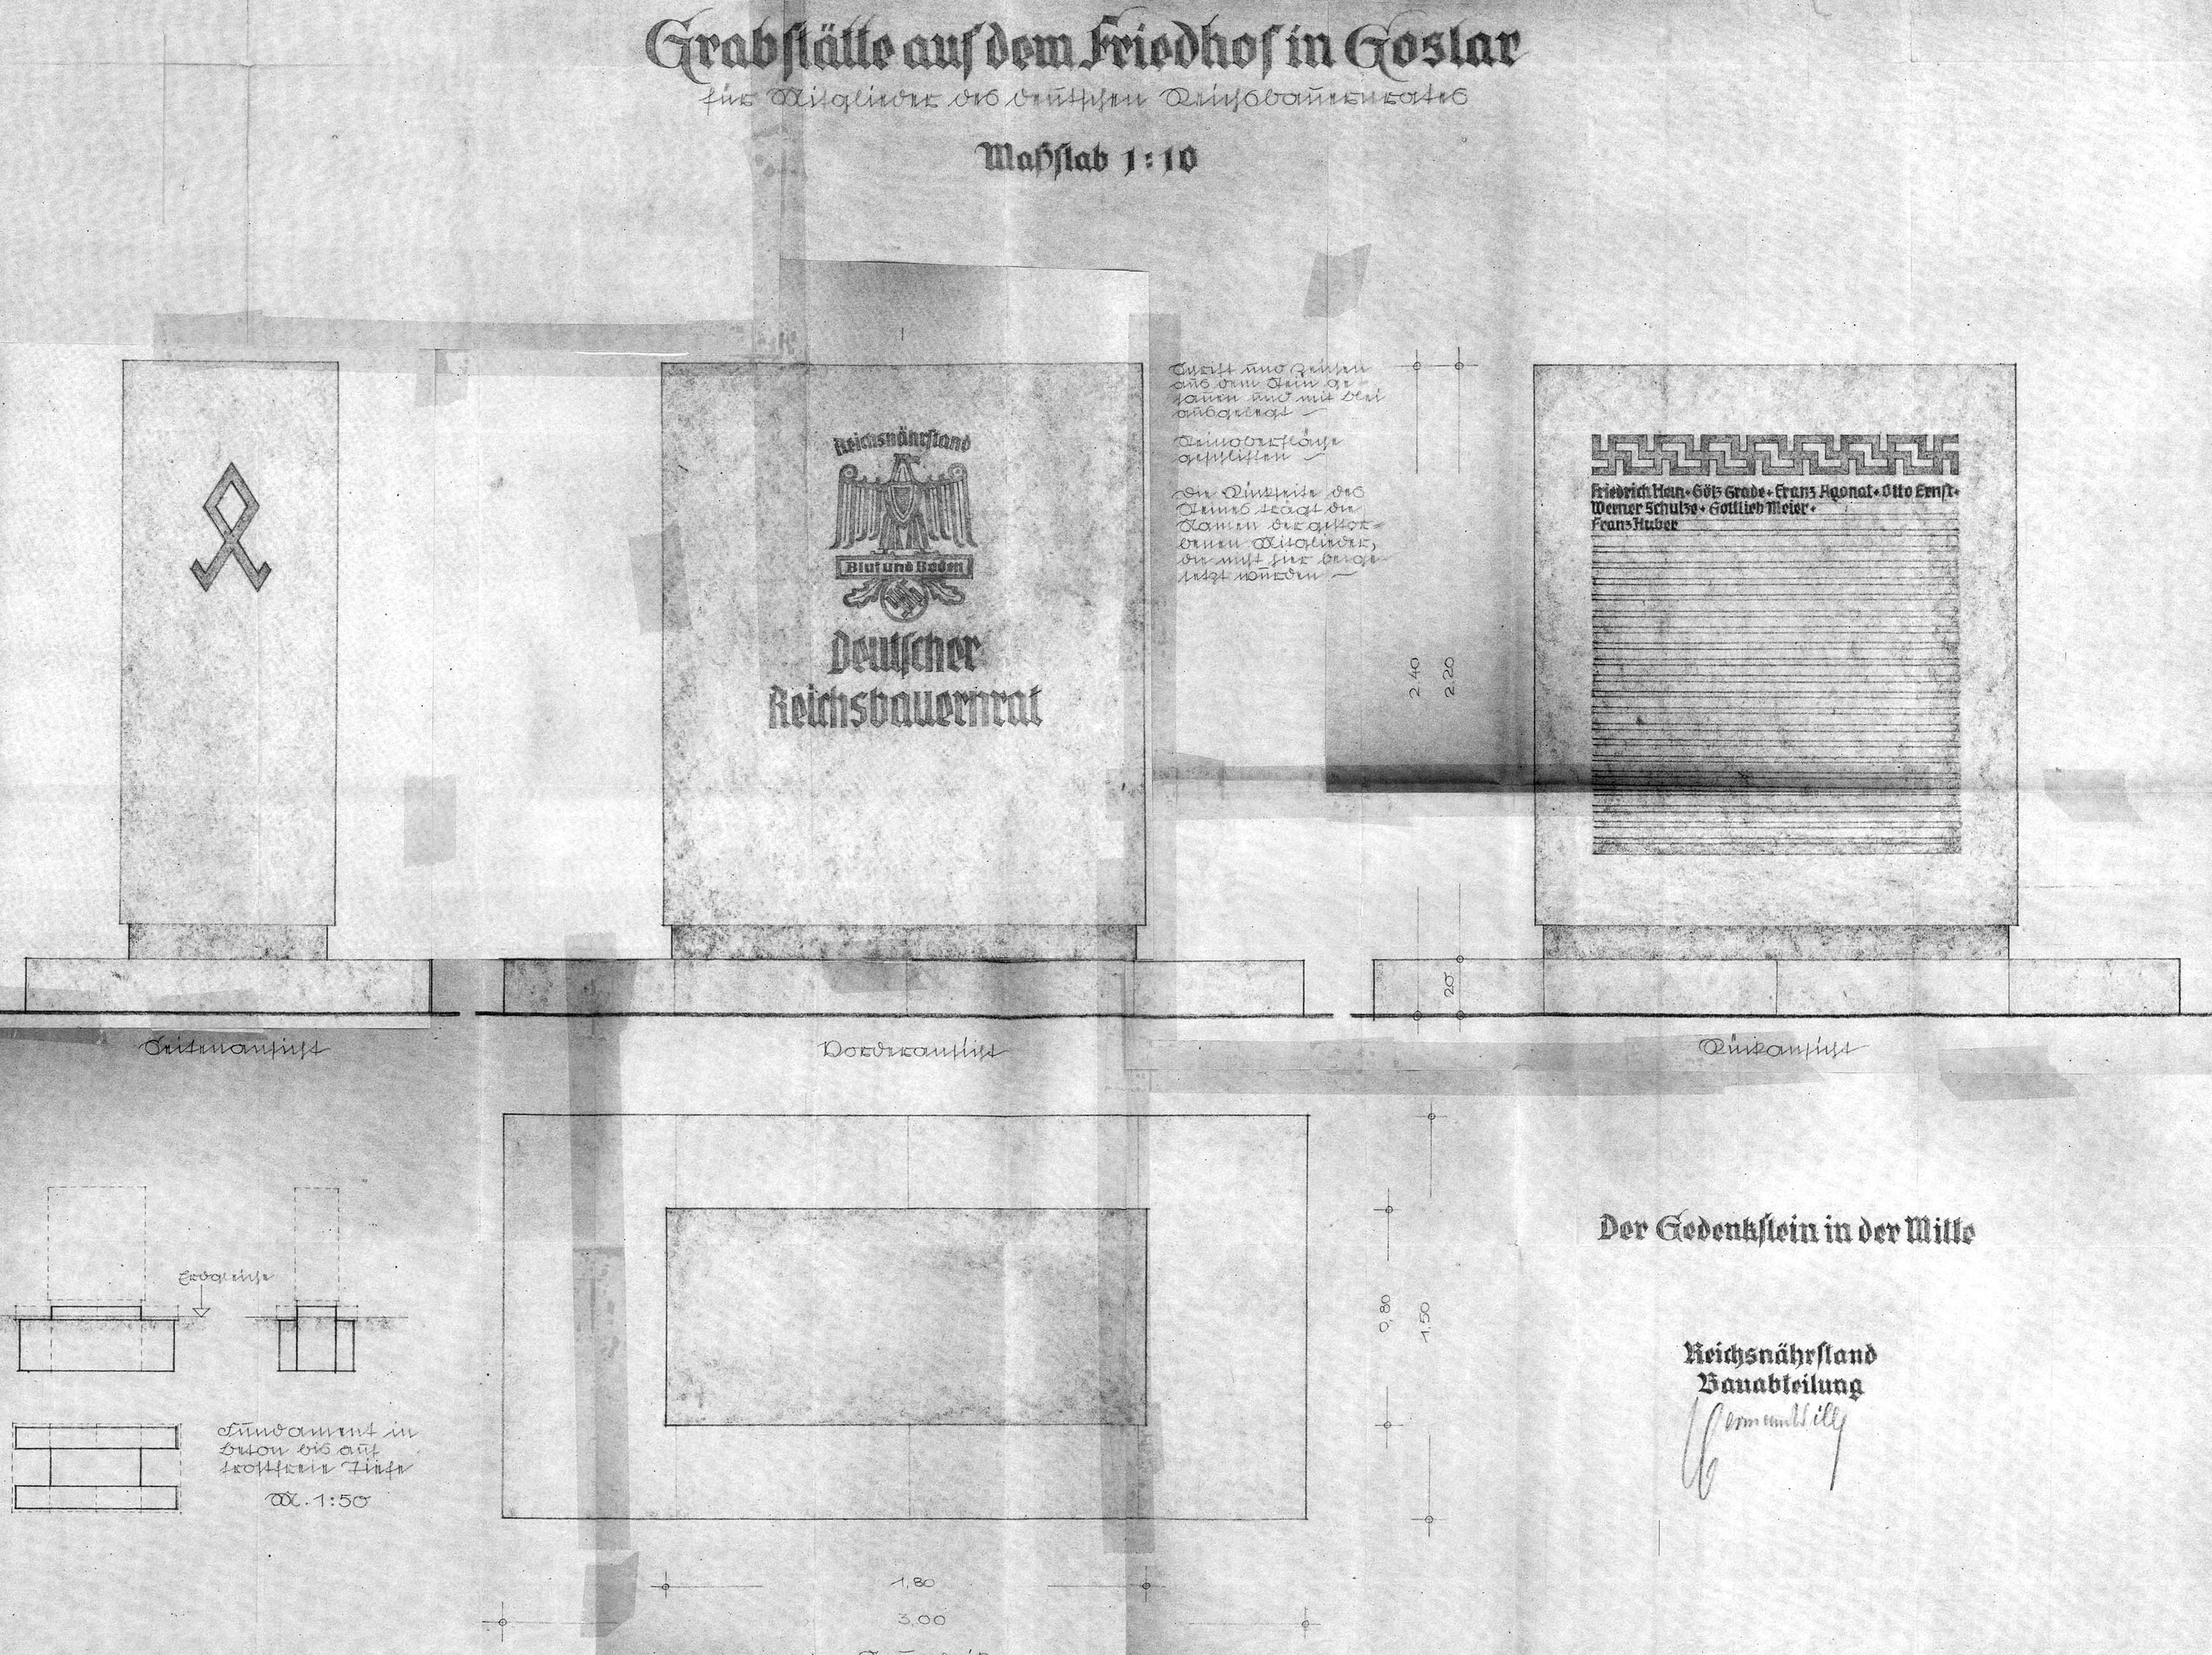 Grabstätte auf dem Friedhof in Goslar
für Mitglieder des deutschen Reichsbauernrates
Maßstab 1:10
Reichsnährstand
Blut und Boden
Deutscher
Reichsbauernrat
Schrift und Zeichen
aus dem Stein ge-
hauen und mit Blei
ausgelegt
Steinoberfläche
geschliffen
Die Rückseite des
Steines trägt die
Namen der gestor-
benen Mitglieder,
die nicht hier beige-
setzt wurden
2.40
2.20
20
Friedrich Hein • Götz Grade • Franz Agonat • Otto Ernst •
Werner Schulze • Gottlieb Meier •
Franz Huber
Seitenansicht
Vorderansicht
Rückansicht
Erdgleiche
Fundament in
Beton bis auf
frostfreie Tiefe
M. 1:50
0,80
1,50
1,80
3,00
Der Gedenkstein in der Mitte
Reichsnährstand
Bauabteilung